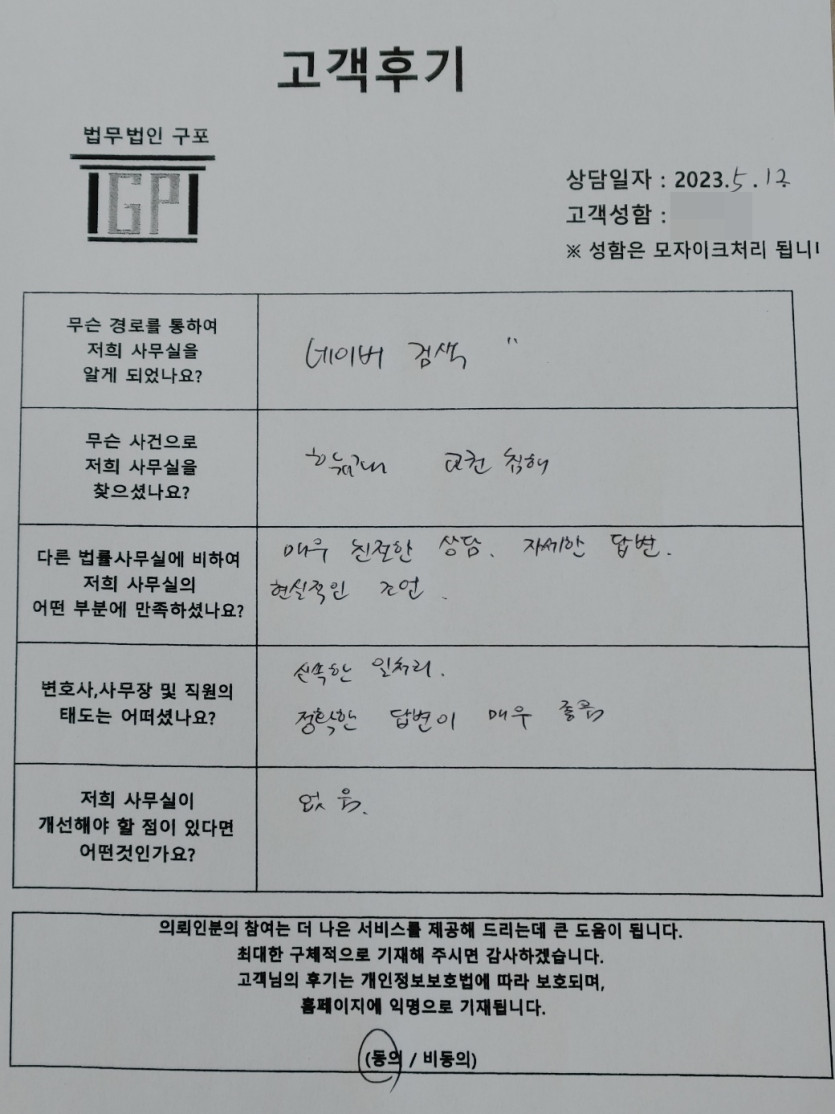 고객후기
법무법인 구포
GP
상담일자 : 2023.5.12
고객성함 :
※ 성함은 모자이크처리 됩니
무슨 경로를 통하여
저희 사무실을
알게 되었나요?
네이버 검색 "
무슨 사건으로
저희 사무실을
찾으셨나요?
교권 침해
다른 법률사무실에 비하여
저희 사무실의
어떤 부분에 만족하셨나요?
매우 친절한 상담. 자세한 답변.
현실적인 조언.
변호사,사무장 및 직원의
태도는 어떠셨나요?
신속한 일처리.
정확한 답변이 매우 좋음
저희 사무실이
개선해야 할 점이 있다면
어떤것인가요?
없음.
의뢰인분의 참여는 더 나은 서비스를 제공해 드리는데 큰 도움이 됩니다.
최대한 구체적으로 기재해 주시면 감사하겠습니다.
고객님의 후기는 개인정보보호법에 따라 보호되며,
홈페이지에 익명으로 기재됩니다.
(동의 / 비동의)